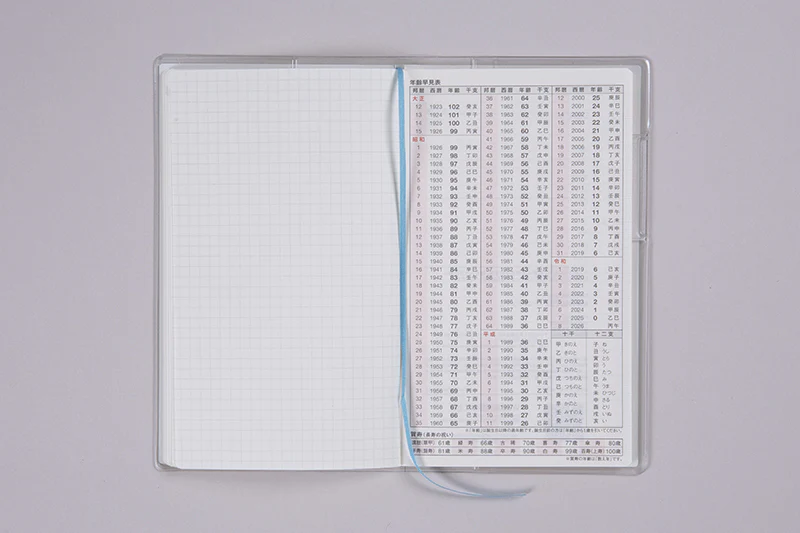 年齢早見表
邦暦 西暦 年齢 干支
大正
12 1923 102 癸亥
13 1924 101 甲子
14 1925 100 乙丑
15 1926 99 丙寅
昭和
1 1926 99 丙寅
2 1927 98 丁卯
3 1928 97 戊辰
4 1929 96 己巳
5 1930 95 庚午
6 1931 94 辛未
7 1932 93 壬申
8 1933 92 癸酉
9 1934 91 甲戌
10 1935 90 乙亥
11 1936 89 丙子
12 1937 88 丁丑
13 1938 87 戊寅
14 1939 86 己卯
15 1940 85 庚辰
16 1941 84 辛巳
17 1942 83 壬午
18 1943 82 癸未
19 1944 81 甲申
20 1945 80 乙酉
21 1946 79 丙戌
22 1947 78 丁亥
23 1948 77 戊子
24 1949 76 己丑
25 1950 75 庚寅
26 1951 74 辛卯
27 1952 73 壬辰
28 1953 72 癸巳
29 1954 71 甲午
30 1955 70 乙未
31 1956 69 丙申
32 1957 68 丁酉
33 1958 67 戊戌
34 1959 66 己亥
35 1960 65 庚子
邦暦 西暦 年齢 干支
36 1961 64 辛丑
37 1962 63 壬寅
38 1963 62 癸卯
39 1964 61 甲辰
40 1965 60 乙巳
41 1966 59 丙午
42 1967 58 丁未
43 1968 57 戊申
44 1969 56 己酉
45 1970 55 庚戌
46 1971 54 辛亥
47 1972 53 壬子
48 1973 52 癸丑
49 1974 51 甲寅
50 1975 50 乙卯
51 1976 49 丙辰
52 1977 48 丁巳
53 1978 47 戊午
54 1979 46 己未
55 1980 45 庚申
56 1981 44 辛酉
57 1982 43 壬戌
58 1983 42 癸亥
59 1984 41 甲子
60 1985 40 乙丑
61 1986 39 丙寅
62 1987 38 丁卯
63 1988 37 戊辰
64 1989 36 己巳
平成
1 1989 36 己巳
2 1990 35 庚午
3 1991 34 辛未
4 1992 33 壬申
5 1993 32 癸酉
6 1994 31 甲戌
7 1995 30 乙亥
8 1996 29 丙子
9 1997 28 丁丑
10 1998 27 戊寅
11 1999 26 己卯
邦暦 西暦 年齢 干支
12 2000 25 庚辰
13 2001 24 辛巳
14 2002 23 壬午
15 2003 22 癸未
16 2004 21 甲申
17 2005 20 乙酉
18 2006 19 丙戌
19 2007 18 丁亥
20 2008 17 戊子
21 2009 16 己丑
22 2010 15 庚寅
23 2011 14 辛卯
24 2012 13 壬辰
25 2013 12 癸巳
26 2014 11 甲午
27 2015 10 乙未
28 2016 9 丙申
29 2017 8 丁酉
30 2018 7 戊戌
31 2019 6 己亥
令和
1 2019 6 己亥
2 2020 5 庚子
3 2021 4 辛丑
4 2022 3 壬寅
5 2023 2 癸卯
6 2024 1 甲辰
7 2025 0 乙巳
8 2026 丙午
十干
甲 きのえ
乙 きのと
丙 ひのえ
丁 ひのと
戊 つちのえ
己 つちのと
庚 かのえ
辛 かのと
壬 みずのえ
癸 みずのと
十二支
子 ね
丑 うし
寅 とら
卯 う
辰 たつ
巳 み
午 うま
未 ひつじ
申 さる
酉 とり
戌 いぬ
亥 い
賀寿(長寿の祝い)
還暦(華甲) 61歳 緑寿 66歳 古稀 70歳 喜寿 77歳 傘寿 80歳
半寿(盤寿) 81歳 米寿 88歳 卒寿 90歳 白寿 99歳 百寿(上寿) 100歳
※賀寿の年齢は「数え年」です。